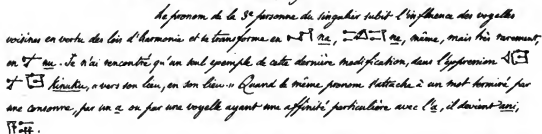 Le pronom de la 3e personne du singulier subit l'influence des voyelles
voisines en vertu des lois d'harmonie et se transforme en na, na, même, mais très rarement,
en nu. Je n'ai rencontré qu'un seul exemple de cette dernière modification, dans l'expression
Kinuku, « vers son lieu, en son lieu. » Quand le même pronom s'attache à un mot terminé par
une consonne, par un a ou par une voyelle ayant une affinité particulière avec l'a, il devient ani,